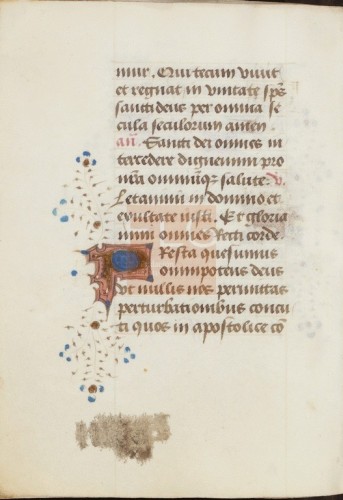 mur. Qui tecum viuit
et regnat in vnitate sp̄s
sancti deus per omnia se
cula seculorum amen.
an̄. Sancti dei omnes in
tercedere dignemini pro
nr̄a omniūqꝫ salute. v.
Letamini in domino et
exultate iusti. Et gloria
mini omnes Recti corde.
Presta quesumus
omnipotens deus
vt nullis nos permittas
perturbationibus concu
ti quos in apostolice cō